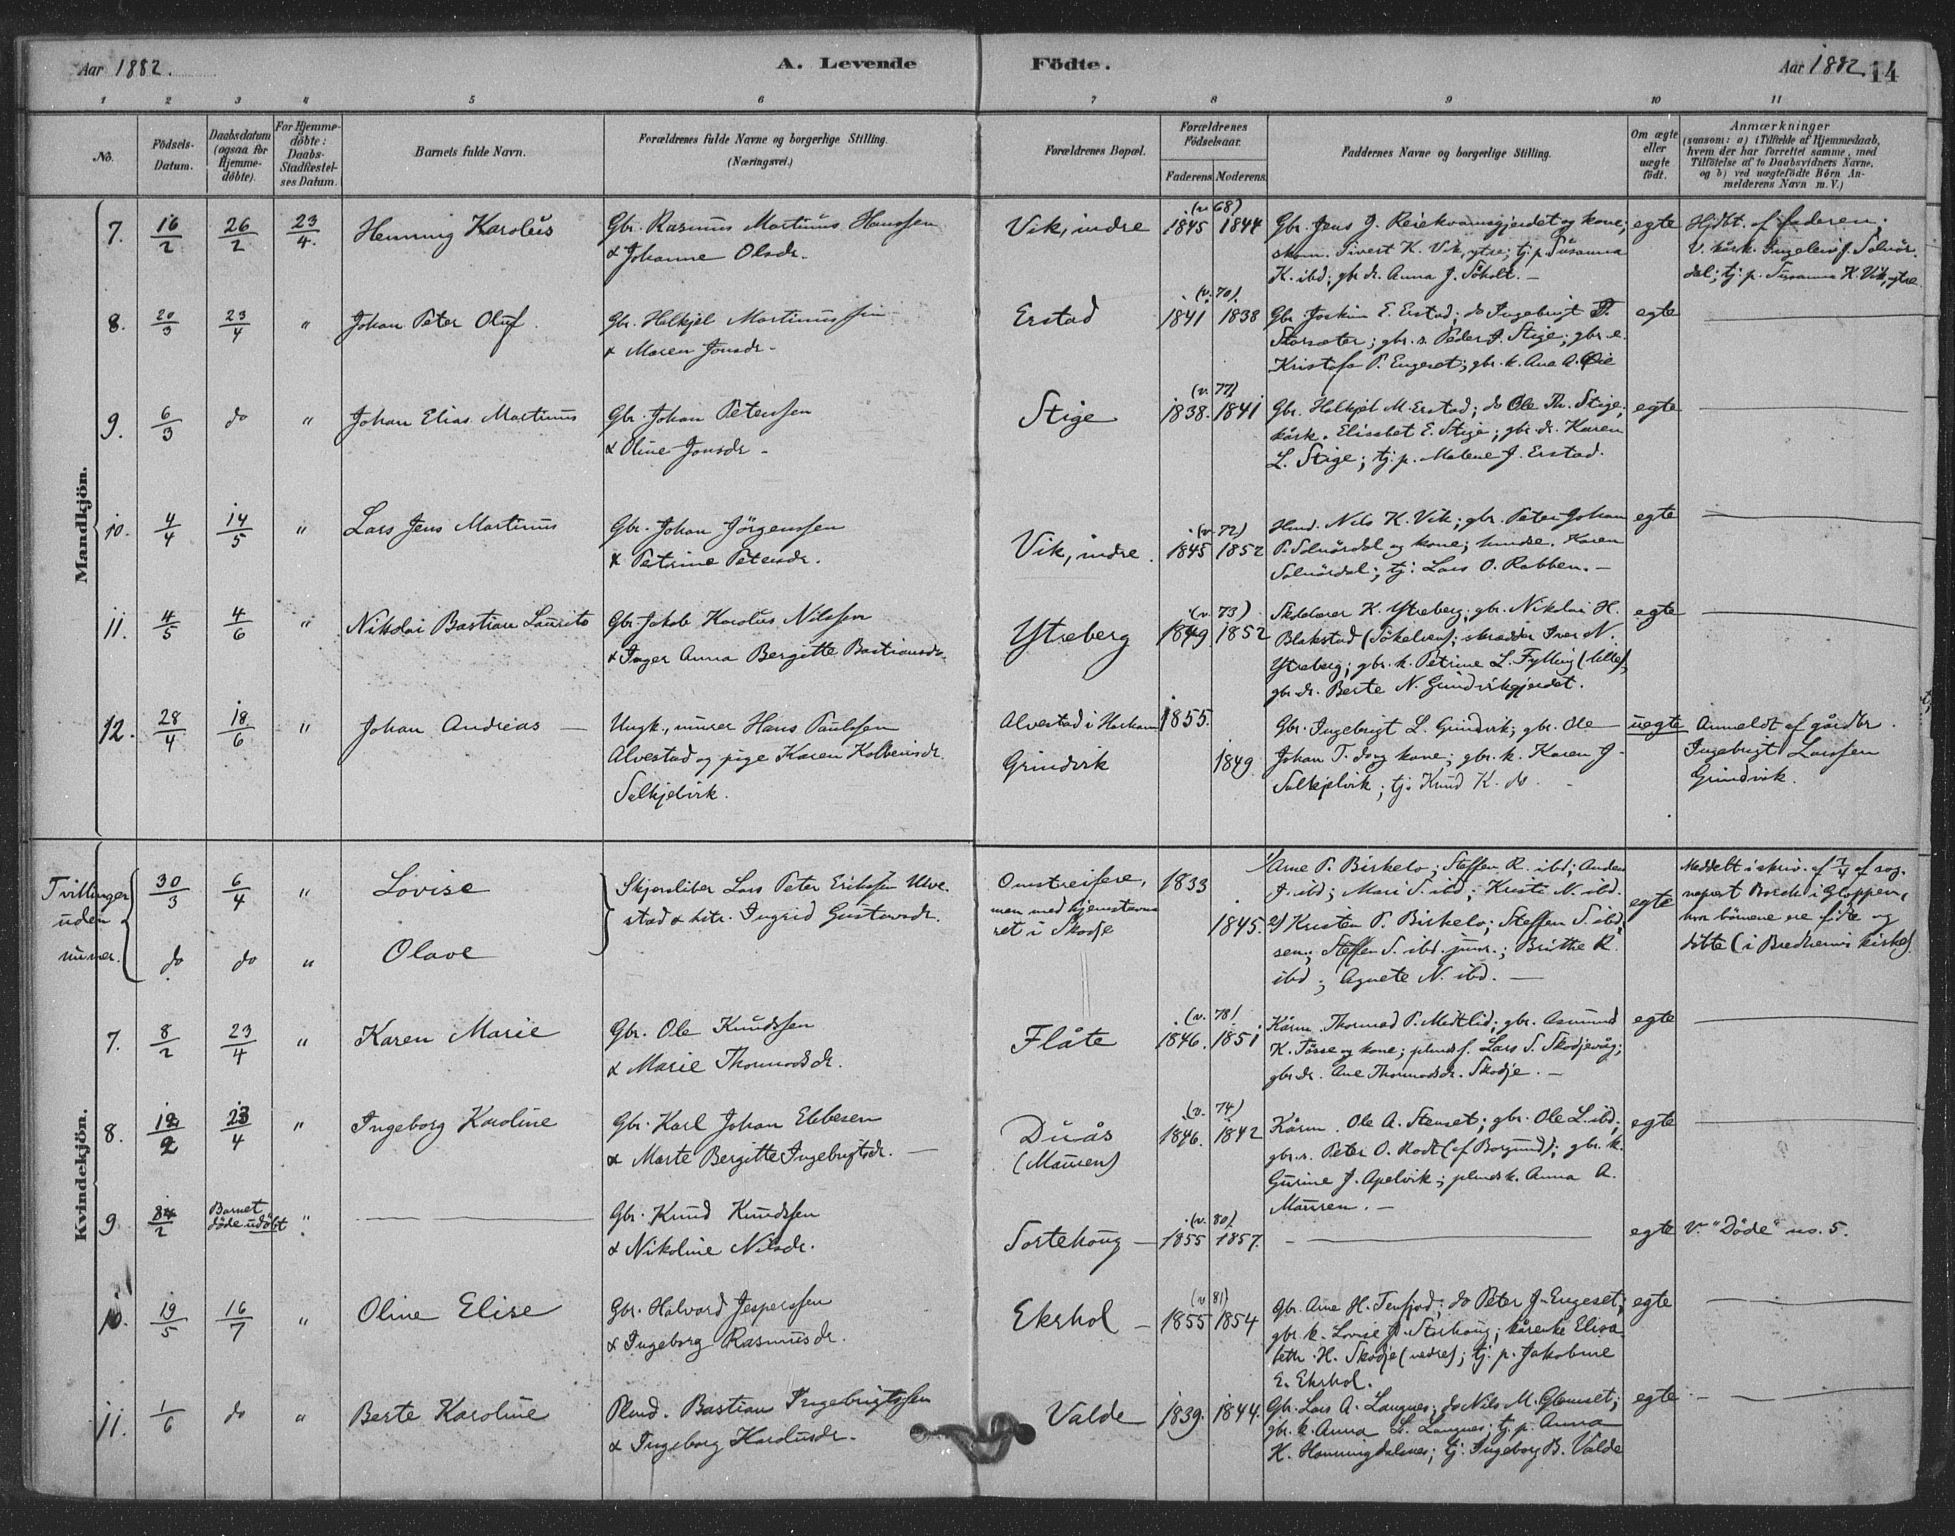 Aar 1882.
A. Levende Födte.
Aar 1882. 14
1 2 3 4 5 6 7 8 9 10 11
No.
Födsels-Datum.
Daabsdatum (ogsaa for Hjemmedöbte).
For Hjemmedöbte: Daabs-Stadfæstelses Datum.
Barnets fulde Navn.
Forældrenes fulde Navne og borgerlige Stilling.
(Næringsvei.)
Forældrenes Bopæl.
Forældrenes Födselsaar.
Faderens. Moderens.
Faddernes Navne og borgerlige Stilling.
Om ægte eller uægte födt.
Anmærkninger
(saasom: a) i Tilfælde af Hjemmedaab,
hvem der har forrettet samme, med
Tilföielse af to Daabsvidners Navne,
og b) ved uægtefödte Börn Anmelderens Navn m. V.)
Mandkjön.
7. 16/2 26/2 23/4. Henning Karolus
Gbr. Rasmus Martinus Hanssen
& Johanne Olsdr.
Vik, indre (v. 68) 1845 1844
Gbr. Jens J. Reiekvamsgjerdet og kone;
skom. Sivert K. Vik, ytre; tj. p. Susanna
K. ibd; gbr. dr. Anna J. Söholt. —
egte
Hjdbt. af faderen.
V. kårk. Ingeleiv J. Solnör-
dal; tj. p. Susanna K. Vik, ytre
8. 20/3 23/4 " Johan Peter Oluf.
Gbr. Helkjel Martinussen
& Maren Jonsdr.
Erstad (v. 70). 1841 1838
Gbr. Joakim E. Erstad; do Ingebrigt P.
Storsæter; gbr. s. Peder J. Stige; gbr. e.
Kristofa P. Engeset; gbr. k. Ane A. Öie
egte
9. 6/3 do " Johan Elias Martinus
Gbr. Johan Peterssen
& Oline Jonsdr.
Stige (v. 77) 1838. 1841
Gbr. Helkjel M. Erstad; do Ole Th. Stige;
kårk. Elisabet E. Stige; gbr. dr. Karen
L. Stige; tj. p. Malene J. Erstad.
egte
10. 4/4 14/5 " Lars Jens Martinus
Gbr. Johan Jörgenssen
& Petrine Petersdr.
Vik, indre. (v. 72) 1845 1852
Hmd. Nils K. Vik; gbr. Peter Johan
P. Solnördal og kone; hmdsdr. Karen
Solnördal; tj: Lars O. Rabben. —
egte
11. 4/5 4/6 " Nikolai Bastian Laurits
Gbr. Jakob Karolus Nilssen
& Inger Anna Bergitte Bastiansdr.
Ytreberg (v. 73) 1849. 1852
Skolelærer K. Ytreberg; gbr. Nikolai H.
Blakstad (Sökelven); skrædder Iver N.
Ytreberg; gbr. k. Petrine L. Fylling (lille);
gbr. dr. Berte N. Grindvikgjerdet.
egte
12. 28/4 18/6 " Johan Andreas —
Ungk., murer Hans Paulssen
Alvestad og pige Karen Kolbeinsdr.
Solkjelvik.
Alvestad i Harham
Grindvik
1855.
1849.
Gbr. Ingebrigt L. Grindvik; gbr. Ole
Johan T. do og kone; gbr. k. Karen J.
Solkjelvik; tj. Knud K. do.
uegte
Anmeldt af gårdbr.
Ingebrigt Larssen
Grindvik.
Kvindekjön.
Tvillinger
uden
numer.
30/3 6/4 " Lovise
do do " Olave
Skjærsliber Lars Peter Erikssen Ulve-
stad & hstr. Ingrid Gustavsdr.
Omstreifere,
men med hjemstavns-
ret i Skodje
1833
1845.
1/ Arne P. Birkelo; Steffen R. ibd; Anders
J. ibd; Mari S. ibd; Kristi N. ibd.
2/ Kristen P. Birkelo; Steffen S. ibd.
sen.; Steffen S. ibd. junr.; Brithe R.
ibd; Agnete N. ibd. —
egte
Meddelt i skriv. af 7/4 af sog-
nepræst Borch i Gloppen,
hvor börnene ere födte og
döbte (i Bredheims kirke).
7. 8/2 23/4 " Karen Marie
Gbr. Ole Knudssen
& Marie Thormodsdr.
Flåte (v. 78) 1846. 1851
Kårm. Thormod P. Medtlid; gbr. Asmund
K. Tösse og kone; plmdsf. Lars S. Skodjevåg;
gbr. dr. Ane Thormodsdr. Skodje. —
egte
8. 12/2 23/4 " Ingeborg Karoline
Gbr. Karl Johan Ebbesen
& Marte Bergitte Ingebrigtsdr. —
Duås
(Mauren)
(v. 74) 1846. 1842
Kårm. Ole A. Stenset; gbr. Ole L. ibd;
gbr. s. Peter O. Rodt (af Borgund); gbr. k.
Gurine J. Apelvik; plmdsk. Anna A.
Mauren. —
egte
9 24/2 Barnet
döde udöbt "
Gbr. Knud Knudssen
& Nikoline Nilsdr.
Sortehoug — (v. 80) 1855 1857.
egte V. "Döde" no. 5.
10. 19/5 16/7 " Oline Elise
Gbr. Halvard Jesperssen
& Ingeborg Rasmusdr.
Ekrhol — (v. 81) 1855 1854
Gbr. Arne H. Tenfjord; do Peter J. Engeset;
gbr. k. Lovise P. Storhoug; kårenke Elisa-
beth H. Skodje (nedre); tj. p. Jakobine
E. Ekrhol.
egte
11. 1/6 do " Berte Karoline
Plmd. Bastian Ingebrigtssen
& Ingeborg Karolusdr.
Valde 1839. 1844.
Gbr. Lars A. Langnes; do Nils M. Glomset;
gbr. k. Anna L. Langnes; tj. p. Anna
K. Honningdalsnes; tj. Ingeborg B. Valde
egte